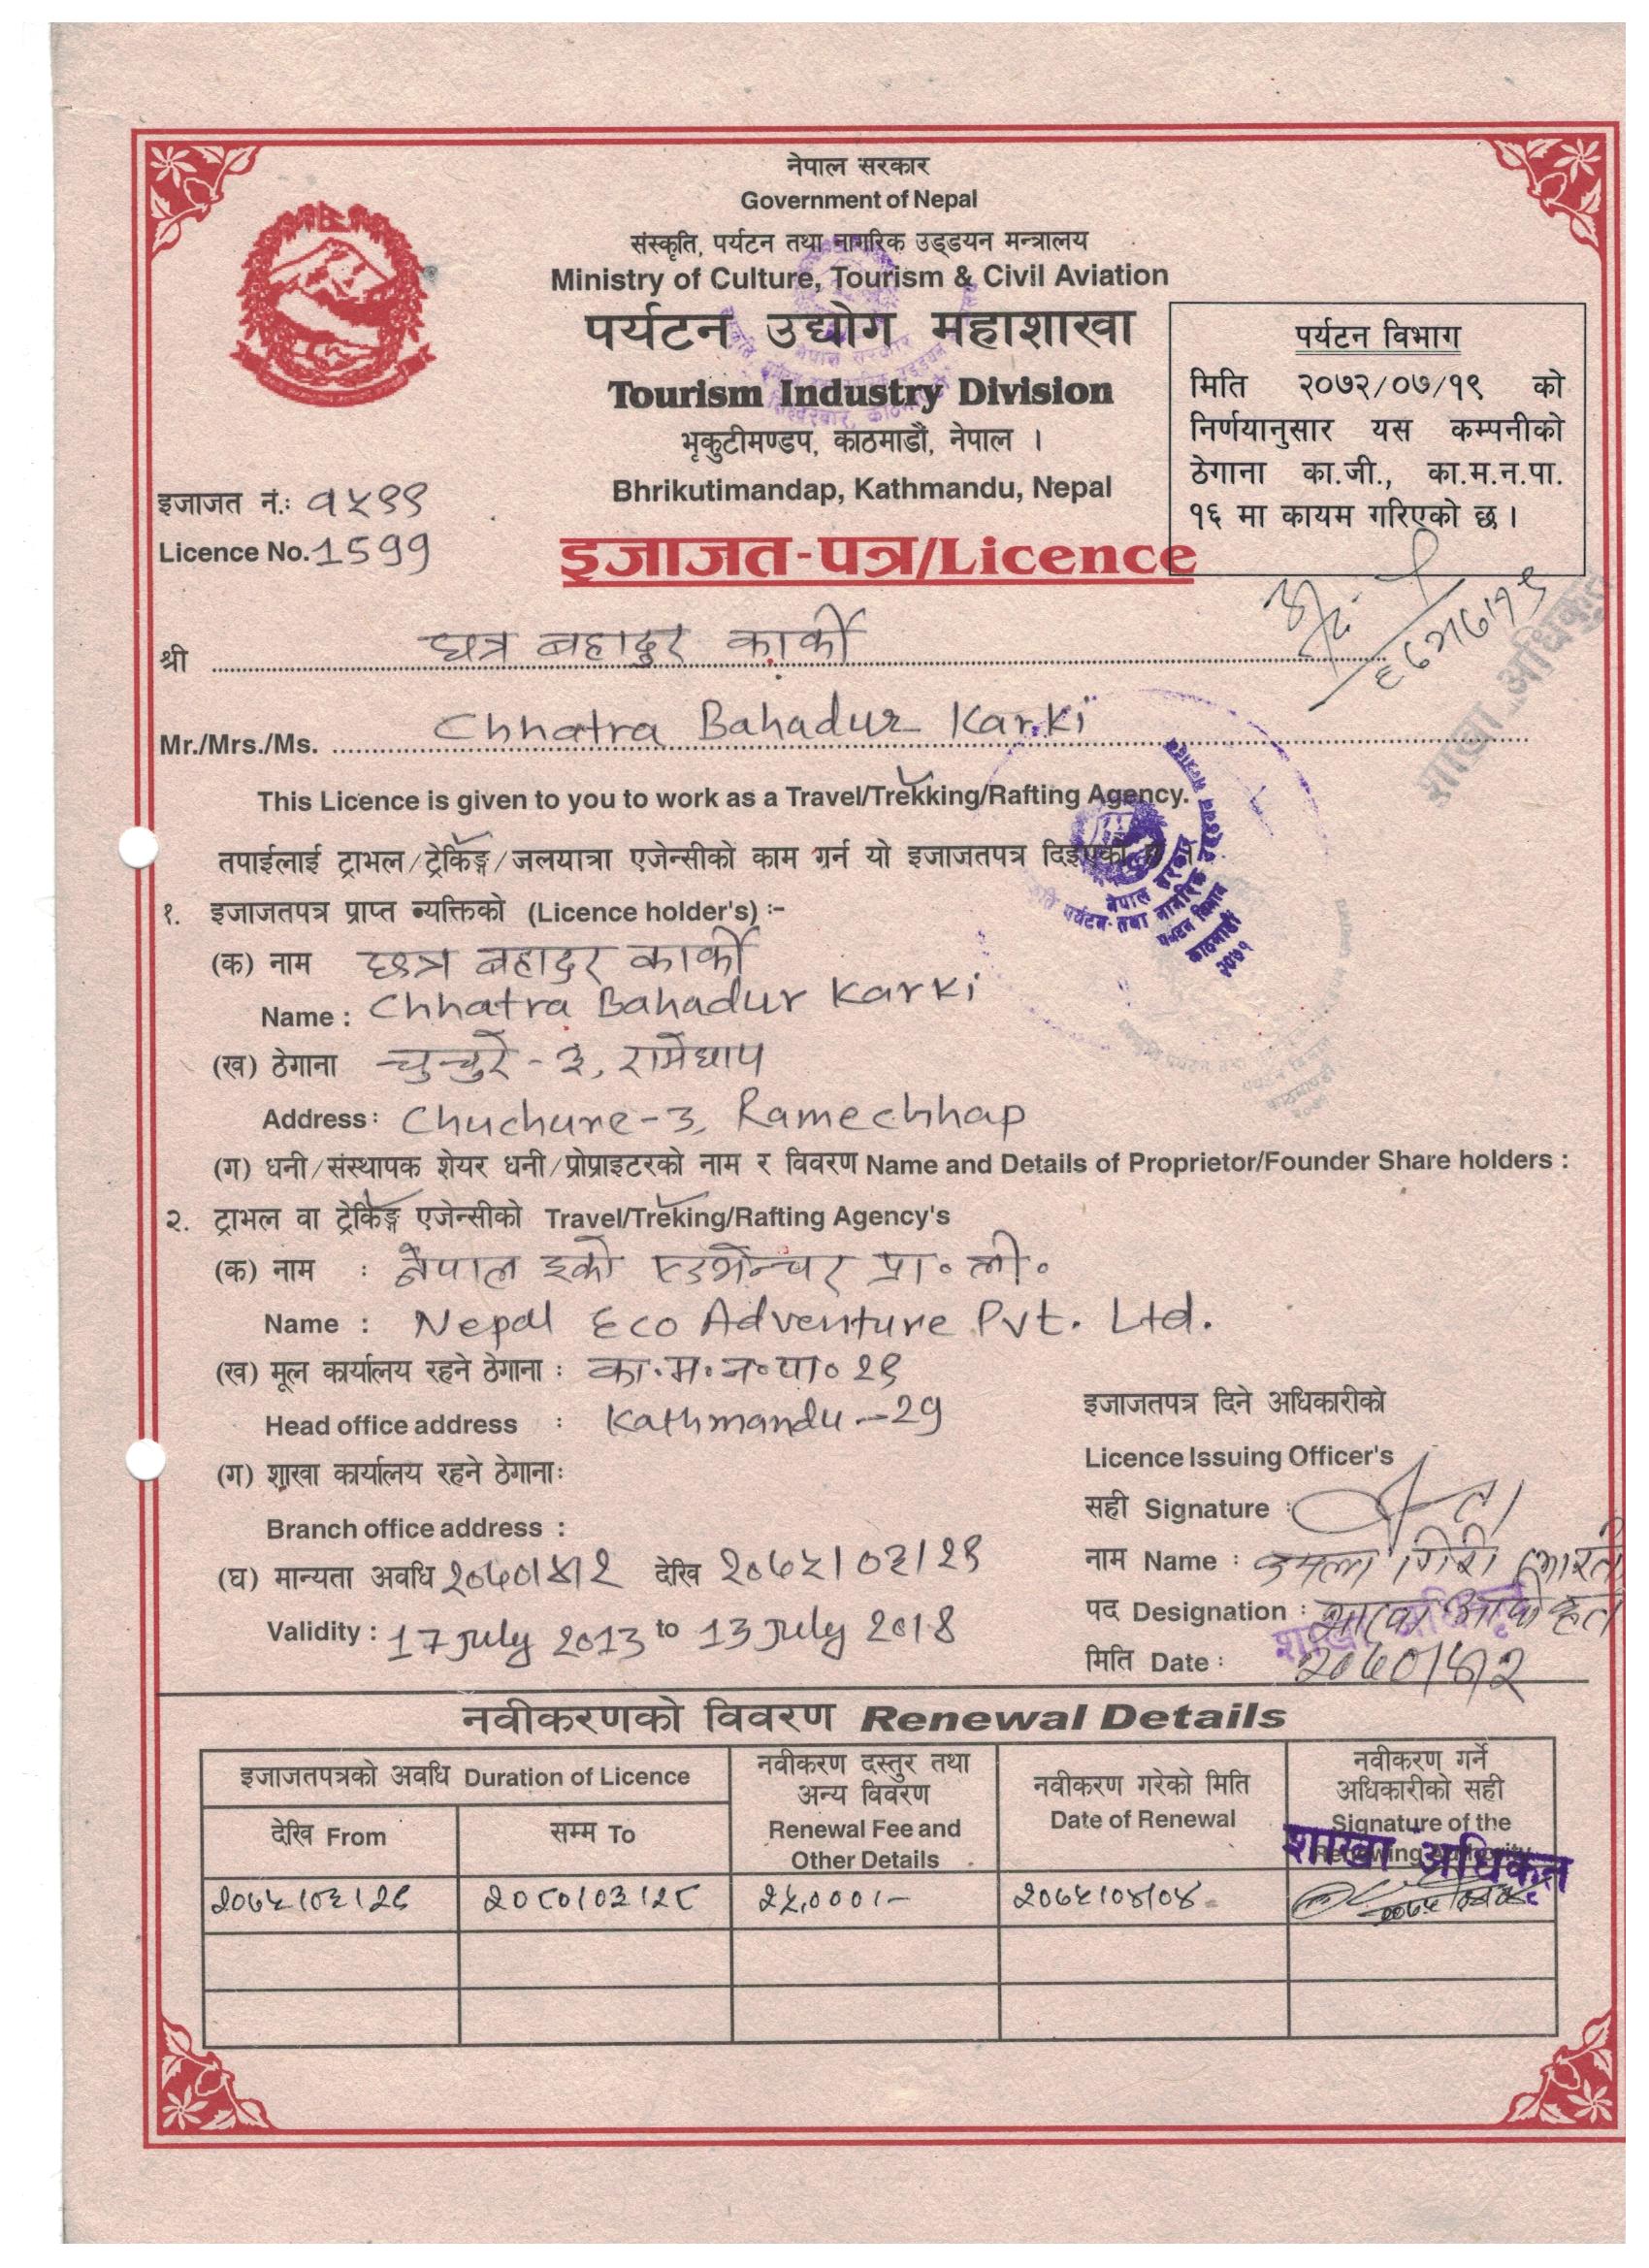 नेपाल सरकार
Government of Nepal
संस्कृति, पर्यटन तथा नागरिक उड्डयन मन्त्रालय
Ministry of Culture, Tourism & Civil Aviation
पर्यटन उद्योग महाशाखा
Tourism Industry Division
भृकुटीमण्डप, काठमाडौं, नेपाल ।
Bhrikutimandap, Kathmandu, Nepal
पर्यटन विभाग
मिति २०७२/०७/१९ को
निर्णयानुसार यस कम्पनीको
ठेगाना का.जी., का.म.न.पा.
१६ मा कायम गरिएको छ ।
इजाजत नं.: १५९९
Licence No. 1599
इजाजत-पत्र/Licence
शाखा अधिकृत
श्री छत्र बहादुर कार्की
Mr./Mrs./Ms. Chhatra Bahadur Karki
This Licence is given to you to work as a Travel/Trekking/Rafting Agency.
तपाईलाई ट्राभल/ट्रेकिङ्ग/जलयात्रा एजेन्सीको काम गर्न यो इजाजतपत्र दिइएको छ ।
नेपाल सरकार
पर्यटन विभाग
काठमाडौं
२०७१
१. इजाजतपत्र प्राप्त व्यक्तिको (Licence holder's) :-
(क) नाम छत्र बहादुर कार्की
Name : Chhatra Bahadur Karki
(ख) ठेगाना चुचुरे - ३, रामेछाप
Address : Chuchure-3, Ramechhap
(ग) धनी/संस्थापक शेयर धनी/प्रोप्राइटरको नाम र विवरण Name and Details of Proprietor/Founder Share holders :
२. ट्राभल वा ट्रेकिङ्ग एजेन्सीको Travel/Treking/Rafting Agency's
(क) नाम : नेपाल इको एडभेन्चर प्रा॰ ली॰
Name : Nepal Eco Adventure Pvt. Ltd.
(ख) मूल कार्यालय रहने ठेगाना : का.म.न॰पा॰ २९
Head office address : Kathmandu-29
(ग) शाखा कार्यालय रहने ठेगाना:
Branch office address :
(घ) मान्यता अवधि २०७०।४।२ देखि २०७५।०३।२९
Validity : 17 July 2013 to 13 July 2018
इजाजतपत्र दिने अधिकारीको
Licence Issuing Officer's
सही Signature :
नाम Name : गिरी भारती
पद Designation : शाखा अधिकृत
मिति Date : २०७०।४।२
नवीकरणको विवरण Renewal Details
इजाजतपत्रको अवधि Duration of Licence
देखि From
सम्म To
नवीकरण दस्तुर तथा
अन्य विवरण
Renewal Fee and
Other Details
नवीकरण गरेको मिति
Date of Renewal
नवीकरण गर्ने
अधिकारीको सही
Signature of the
Renewing Authority
शाखा अधिकृत
२०७५।०३।२९ २०८०।०३।२८ २५,०००।- २०७५।०४।०४